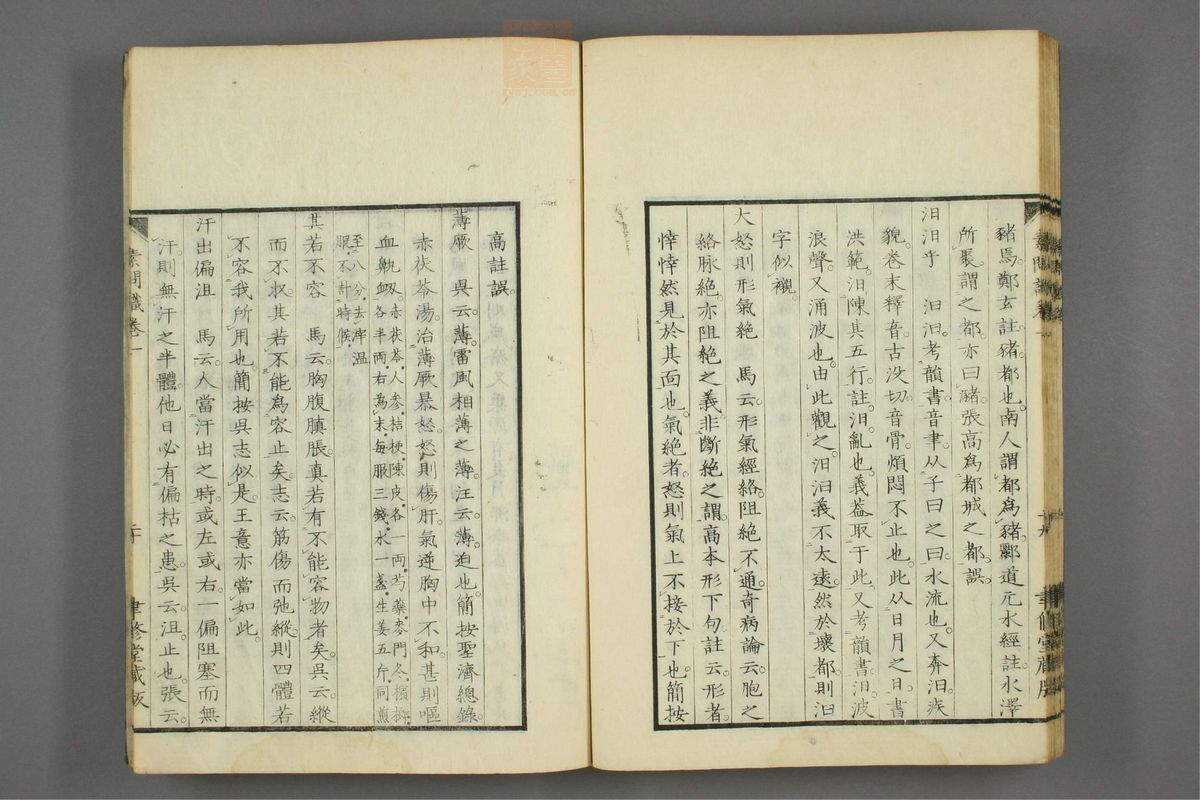 豬焉。鄭玄註。豬。都也。南人謂都為豬。酈道元水經註。水澤
所聚。謂之都。亦曰瀦。張高為都城之都。誤。
汨汨乎　汨汨。考韻書音聿。从子曰之曰。水流也。又奔汨。疾
貌。巻末釋音。古沒切。音骨。煩悶不止也。此从日月之日。書
洪範。汨陳其五行。註。汨。亂也。義蓋取于此。又考韻書。汨。波
浪聲。又涌波也。由此觀之。汨汨義不太遠。然於壞都。則汨
字似襯。
大怒則形氣絶　馬云。形氣經絡。阻絶不通。奇病論云。胞之
絡脉絶。亦阻絶之義。非斷絶之謂。高本形下句。註云。形者。
悻悻然見於其面也。氣絶者。怒則氣上不接於下也。簡按
素問識卷一
十九
聿修堂藏版
高註誤。
薄厥　吳云。薄。雷風相薄之薄。汪云。薄。迫也。簡按聖濟總錄。
赤茯苓湯。治薄厥暴怒。怒則傷肝。氣逆胸中不和。甚則嘔
血鼽衂。赤茯苓。人參。桔梗。陳皮各一兩。芍藥。麥門冬。檳榔。
各半兩。右為末。每服三錢。水一盞。生姜五片。同煎
至八分。去滓溫
服。不計時候。
其若不容　馬云。胸腹䐜脹。真若有不能容物者矣。吳云。縱
而不收。其若不能為容止矣。志云。筋傷而弛縱。則四體若
不容我所用也。簡按吳志似是。王意亦當如此。
汗出偏沮　馬云。人當汗出之時。或左或右。一偏阻塞而無
汗。則無汗之半體。他日必有偏枯之患。吳云。沮。止也。張云。
素問識卷一
二十
聿修堂藏版